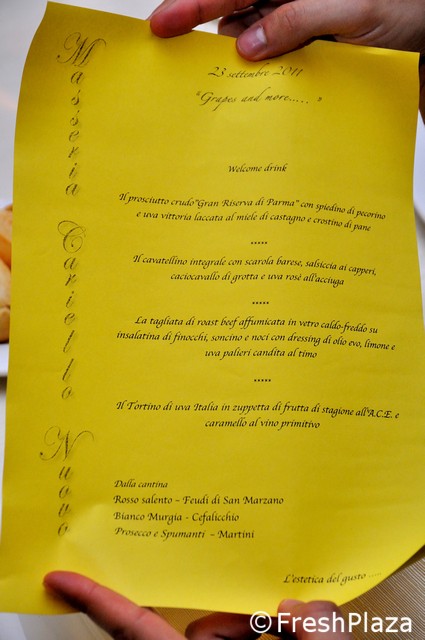 Masseria Cariello Nuovo
23 settembre 2011
"Grapes and more….. "
Welcome drink
Il prosciutto crudo"Gran Riserva di Parma" con spiedino di pecorino
e uva vittoria laccata al miele di castagno e crostino di pane
*****
Il cavatellino integrale con scarola barese, salsiccia ai capperi,
caciocavallo di grotta e uva rosè all'acciuga
*****
La tagliata di roast beef affumicata in vetro caldo-freddo su
insalatina di finocchi, soncino e noci con dressing di olio evo, limone e
uva palieri candita al timo
*****
Il Tortino di uva Italia in zuppetta di frutta di stagione all'A.C.E. e
caramello al vino primitivo
Dalla cantina
Rosso salento – Feudi di San Marzano
Bianco Murgia - Cefalicchio
Prosecco e Spumanti – Martini
L'estetica del gusto ….
© FreshPlaza